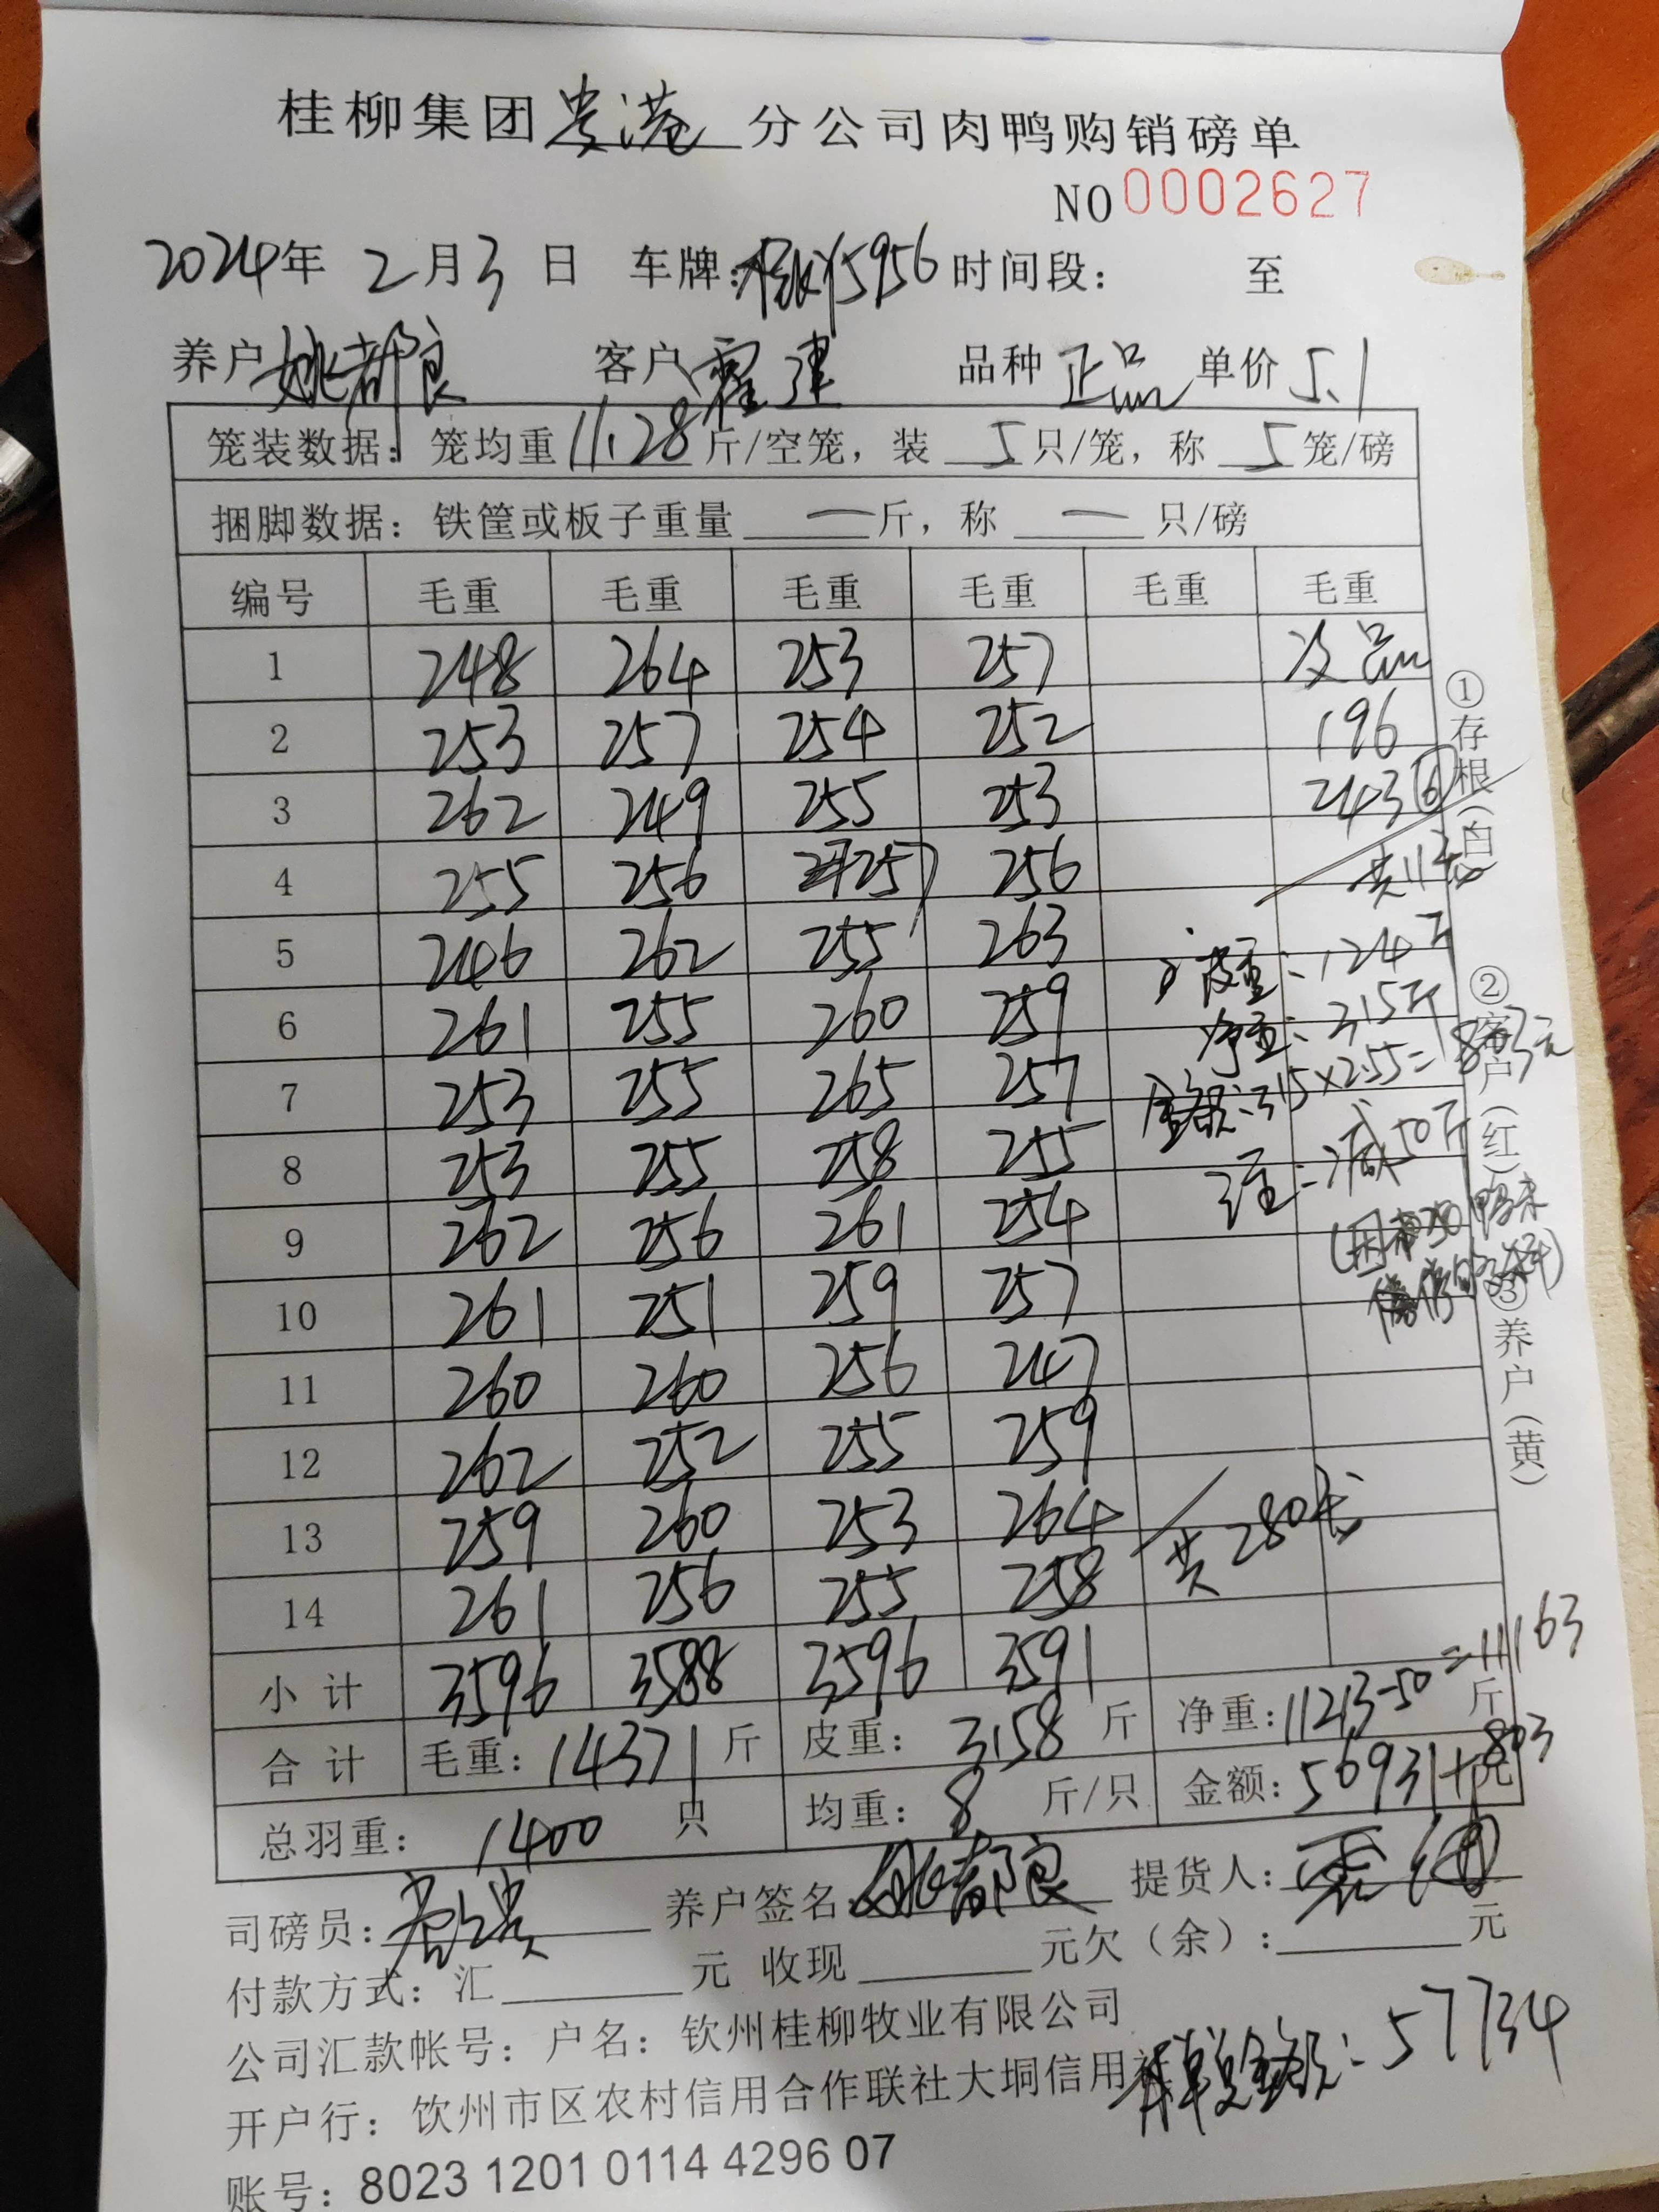 桂柳集团贵港分公司肉鸭购销磅单
NO 0002627
2024年 2月3日 车牌: 5956 时间段: 至
养户 姚都良 客户 霍建 品种 正品 单价 5.1
笼装数据: 笼均重 11.28 斤/空笼, 装 5 只/笼, 称 5 笼/磅
捆脚数据: 铁筐或板子重量 — 斤, 称 — 只/磅
编号 毛重 毛重 毛重 毛重 毛重 毛重
1 248 264 253 257 次品
2 253 257 254 252 196
3 262 249 255 253 243 ⑥
4 255 256 257 256 共11
5 246 262 255 263 皮重: 124斤
6 261 255 260 259 净重: 315斤
7 253 255 265 257 金额: 315×2.55=803元
8 253 255 258 255 注: 减50斤
9 262 256 261 254
10 261 251 259 257
11 260 260 256 247
12 262 252 255 259
13 259 260 253 264
14 261 256 255 258 共280
小计 3596 3588 3596 3591
合计 毛重: 14371 斤 皮重: 3158 斤 净重: 11213-50=11163 斤
总羽重: 1400 只 均重: 8 斤/只 金额: 56931+803 元
司磅员: 养户签名 姚都良 提货人:
付款方式: 汇 元 收现 元欠(余): 元
公司汇款帐号: 户名: 钦州桂柳牧业有限公司
开户行: 钦州市区农村信用合作联社大垌信用社
总金额: 57734
账号: 8023 1201 0114 4296 07
①存根(白)
②客户(红)
③养户(黄)